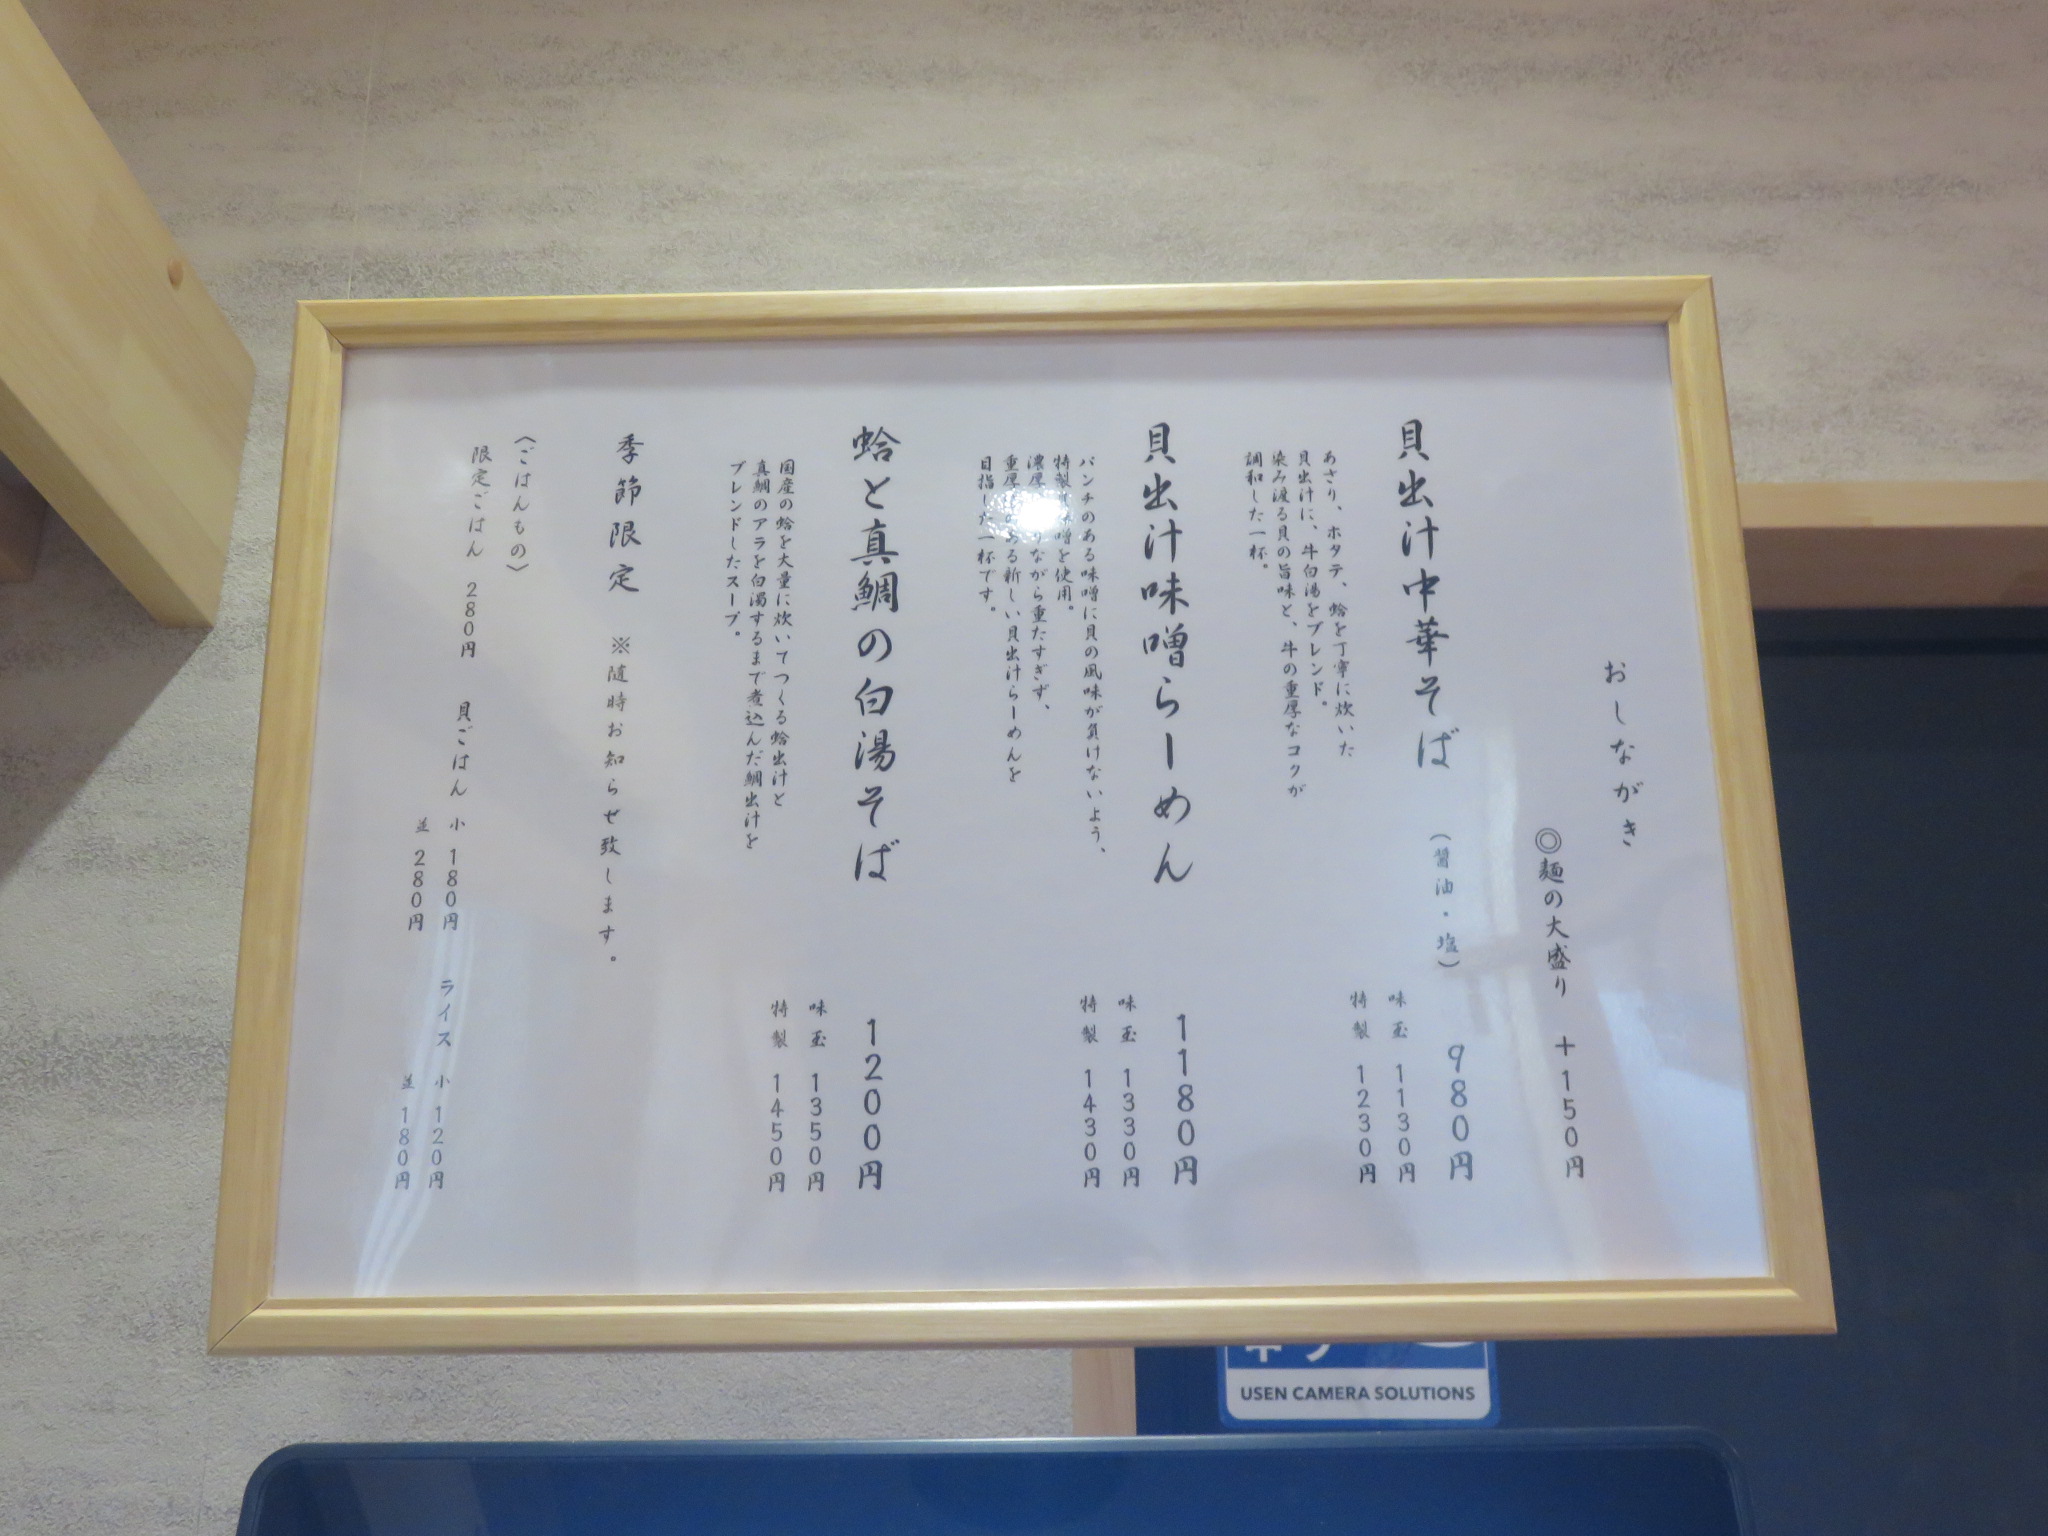 おしながき
◎麺の大盛り ＋150円
貝出汁中華そば （醤油・塩） 980円
味玉 1130円
特製 1230円
あさり、ホタテ、蛤を丁寧に炊いた
貝出汁に、牛白湯をブレンド。
染み渡る貝の旨味と、牛の重厚なコクが
調和した一杯。
貝出汁味噌らーめん 1180円
味玉 1330円
特製 1430円
パンチのある味噌に貝の風味が負けないよう、
特製 噌を使用。
濃厚 ながら重たすぎず、
重厚 ある新しい貝出汁らーめんを
目指した一杯です。
蛤と真鯛の白湯そば 1200円
味玉 1350円
特製 1450円
国産の蛤を大量に炊いてつくる蛤出汁と
真鯛のアラを白濁するまで煮込んだ鯛出汁を
ブレンドしたスープ。
季節限定 ※随時お知らせ致します。
〈ごはんもの〉
限定ごはん 280円 貝ごはん 小 180円 ライス 小 120円
並 280円 並 180円
USEN CAMERA SOLUTIONS